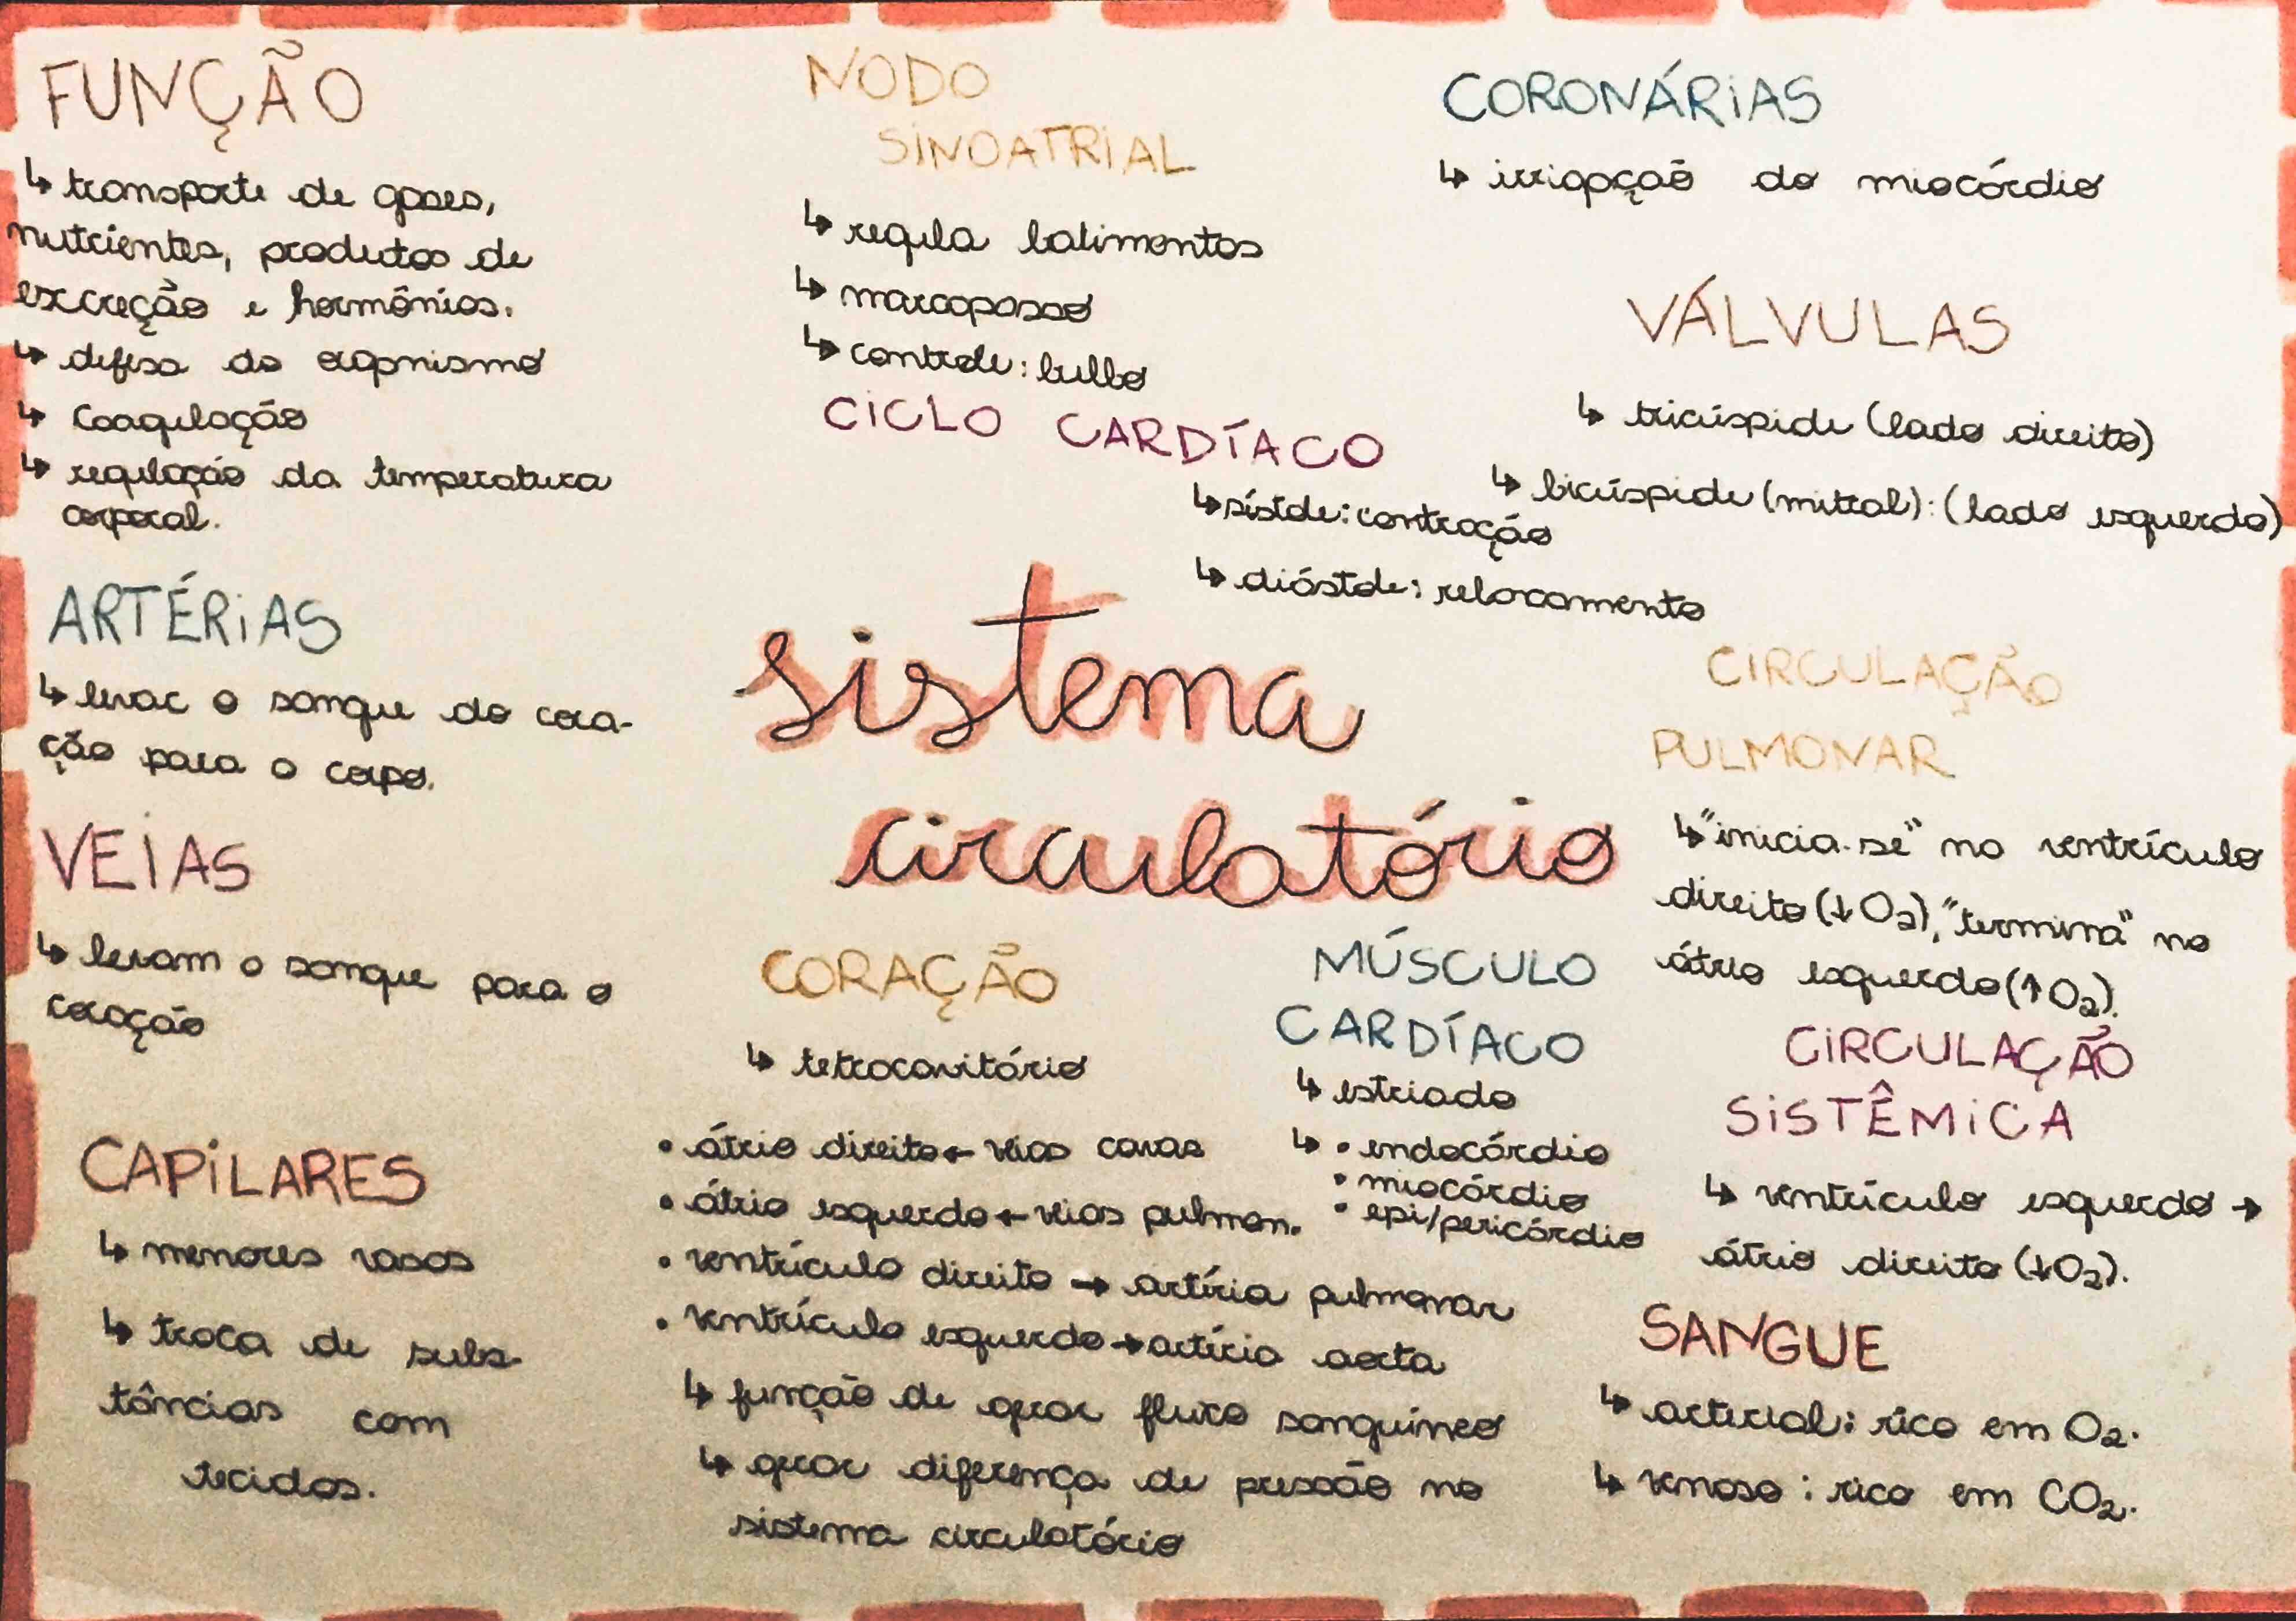 FUNÇÃO
↳ transporte de gases,
nutrientes, produtos de
excreção e hormônios.
↳ defesa do organismo
↳ Coagulação
↳ regulação da temperatura
corporal.
ARTÉRIAS
↳ levar o sangue do cora-
ção para o corpo.
VEIAS
↳ levam o sangue para o
coração
CAPILARES
↳ menores vasos
↳ troca de subs-
tâncias com
tecidos.
NODO
SINOATRIAL
↳ regula batimentos
↳ marcapasso
↳ controle: bulbo
CICLO CARDÍACO
↳ sístole: contração
↳ diástole: relaxamento
sistema
circulatório
CORAÇÃO
↳ tetracavitário
• átrio direito ← veias cavas
• átrio esquerdo ← veias pulmon.
• ventrículo direito → artéria pulmonar
• ventrículo esquerdo → artéria aorta
↳ função de gerar fluxo sanguíneo
↳ gerar diferença de pressão no
sistema circulatório
MÚSCULO
CARDÍACO
↳ estriado
↳ • endocárdio
• miocárdio
• epi/pericárdio
CORONÁRIAS
↳ irrigação do miocárdio
VÁLVULAS
↳ tricúspide (lado direito)
↳ bicúspide (mitral): (lado esquerdo)
CIRCULAÇÃO
PULMONAR
↳ "inicia-se" no ventrículo
direito (↓O₂), "termina" no
átrio esquerdo (↑O₂).
CIRCULAÇÃO
SISTÊMICA
↳ ventrículo esquerdo →
átrio direito (↓O₂).
SANGUE
↳ arterial: rico em O₂.
↳ venoso: rico em CO₂.